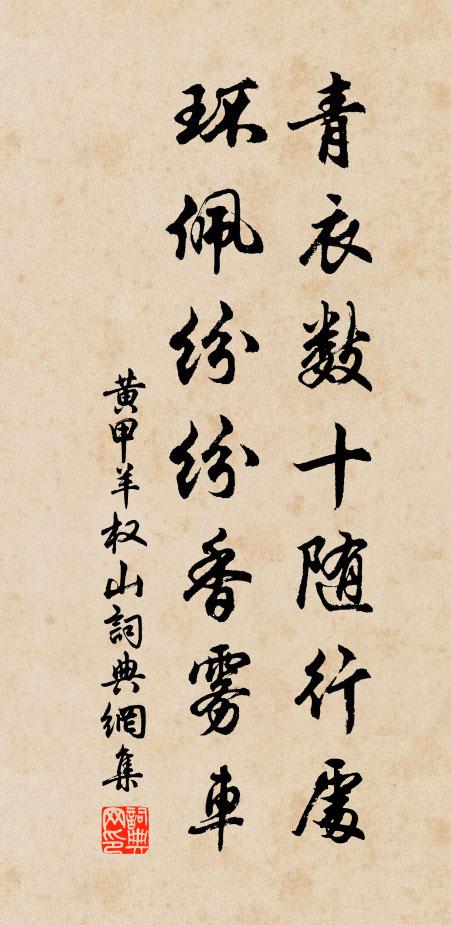 青衣数十随行處
环佩纷纷香雾車
黄甲羊权山詞典網集
詞典网印